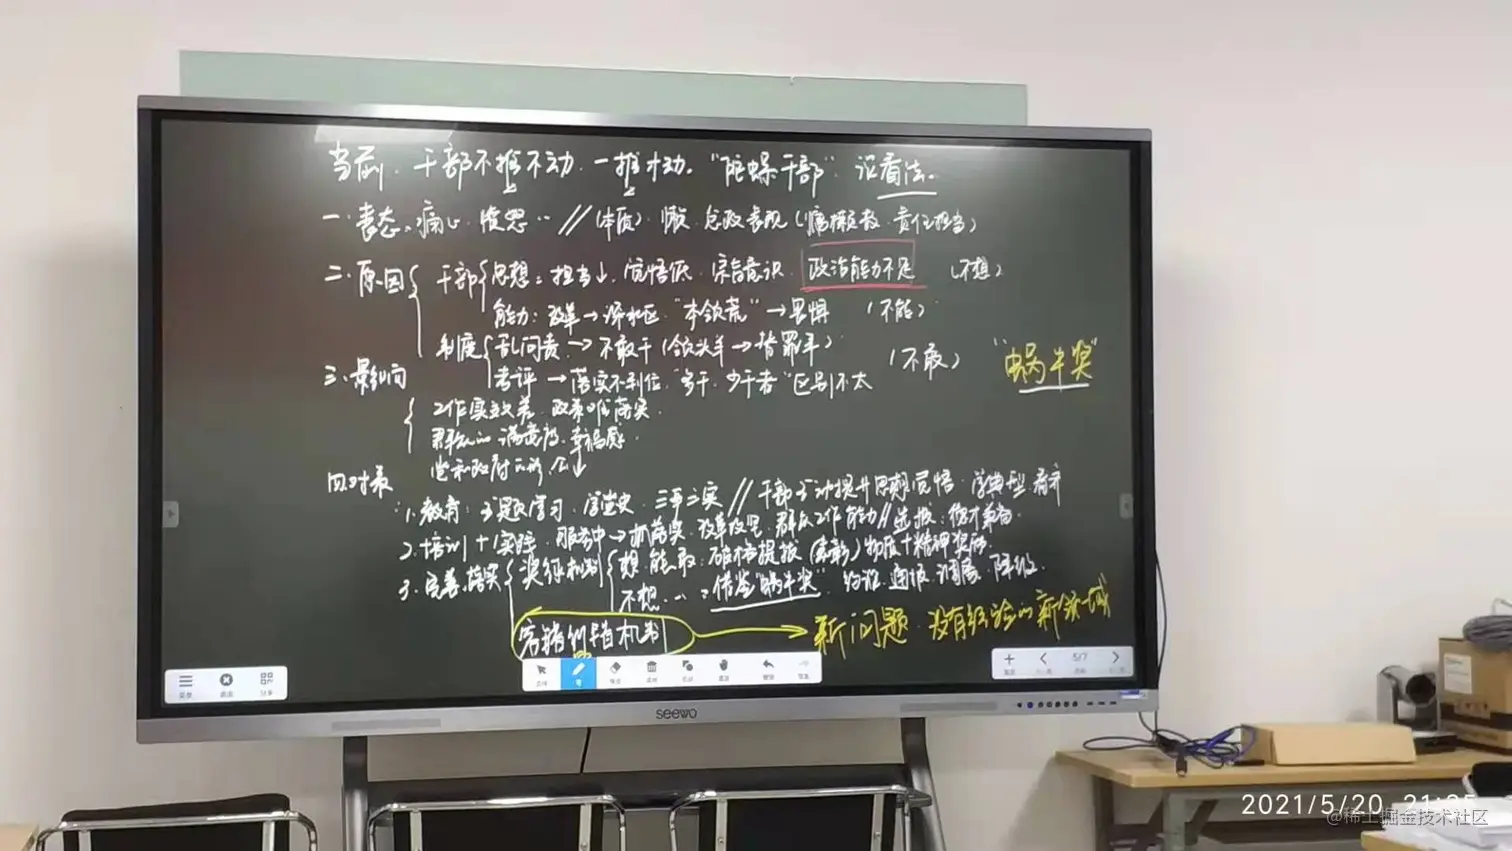 当前,干部不推不动,一推才动。“陀螺干部”谈看法。
一、表态。痛心,反思‥ // (体质),懒,怠政表现(责任担当)
二、原因 干部 思想:担当↓,觉悟低,宗旨意识,政治能力不足 (不想)
能力:改革→深水区,“本领荒”→畏惧 (不能)
制度 乱问责→不敢干(领头羊→替罪羊) (不敢)
考评→落实不到位,“多干,少干者”区别不大
“蜗牛奖”
三、影响
工作实效差,政策难落实。
群众的满意度,幸福感。
党和政府 公 ↓
四、对策
1、教育:专题学习,学党史,三严三实 // 干部主动提升思想觉悟,学典型
2、培训+实践,服务中→抓落实,改革攻坚,群众工作能力 // 选拔:德才兼备
3、完善,落实 奖惩机制 想,能,敢:破格提拔(表彰)物质+精神奖励
不想…:借鉴“蜗牛奖”,约谈,通报,调离,降级。
容错纠错机制 → 新问题,没有经验的新领域
5/7
seewo
2021/5/20 21:
@稀土掘金技术社区